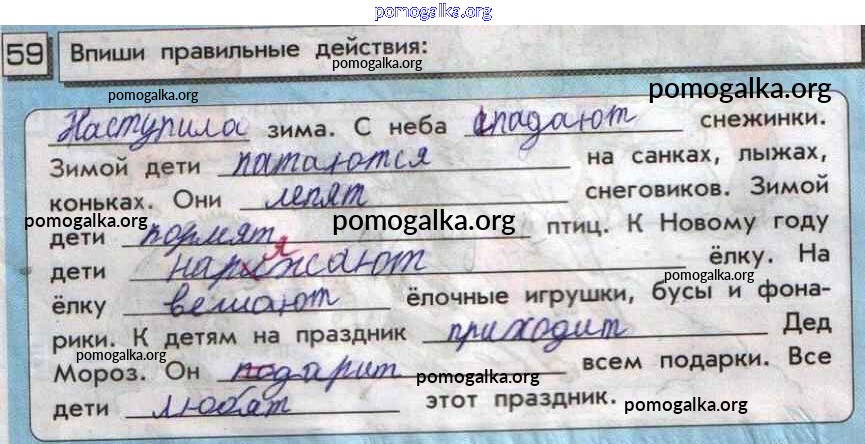 pomogalka.org
59 Впиши правильные действия:
pomogalka.org
pomogalka.org
pomogalka.org
Наступила зима. С неба спадают снежинки.
Зимой дети катаются на санках, лыжах,
коньках. Они лепят снеговиков. Зимой
pomogalka.org
pomogalka.org
дети кормят птиц. К Новому году
дети наряжают ёлку. На
pomogalka.org
ёлку вешают ёлочные игрушки, бусы и фона-
рики. К детям на праздник приходит Дед
pomogalka.org
Мороз. Он подарит всем подарки. Все
pomogalka.org
дети любят этот праздник.
pomogalka.org